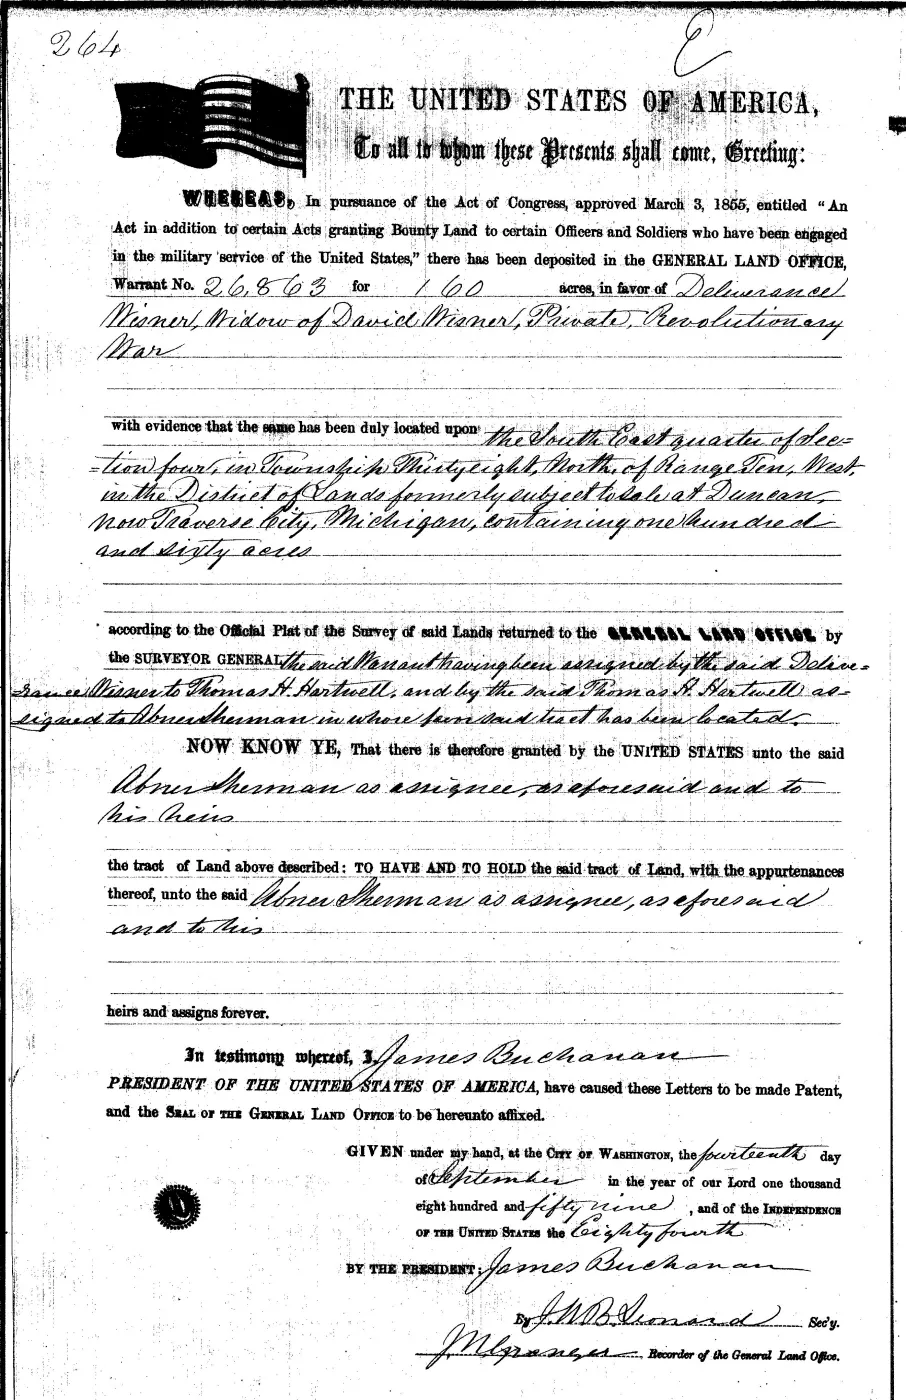 264
E
THE UNITED STATES OF AMERICA,
To all to whom these Presents shall come, Greeting:
WHEREAS, In pursuance of the Act of Congress, approved March 3, 1855, entitled "An
Act in addition to certain Acts granting Bounty Land to certain Officers and Soldiers who have been engaged
in the military service of the United States," there has been deposited in the GENERAL LAND OFFICE,
Warrant No. 26,863 for 160 acres, in favor of Deliverance
Wisner, Widow of David Wisner, Private, Revolutionary
War
with evidence that the same has been duly located upon the South East quarter of Sec=
=tion four, in Township Thirty eight, North, of Range Ten, West,
in the District of Lands formerly subject to sale at Duncan,
now Traverse City, Michigan, containing one hundred
and sixty acres
according to the Official Plat of the Survey of said Lands returned to the GENERAL LAND OFFICE by
the SURVEYOR GENERAL the said Warrant having been assigned by the said Delive=
rance Wisner to Thomas H. Hartwell, and by the said Thomas H. Hartwell as=
signed to Abner Sherman in whose favor said tract has been located.
NOW KNOW YE, That there is therefore granted by the UNITED STATES unto the said
Abner Sherman as assignee, as aforesaid and to
his heirs
the tract of Land above described: TO HAVE AND TO HOLD the said tract of Land, with the appurtenances
thereof, unto the said Abner Sherman as assignee, as aforesaid
and to his
heirs and assigns forever.
In testimony whereof, I, James Buchanan
PRESIDENT OF THE UNITED STATES OF AMERICA, have caused these Letters to be made Patent,
and the SEAL OF THE GENERAL LAND OFFICE to be hereunto affixed.
GIVEN under my hand, at the CITY OF WASHINGTON, the fourteenth day
of September in the year of our Lord one thousand
eight hundred and fifty nine, and of the INDEPENDENCE
OF THE UNITED STATES the Eighty fourth
BY THE PRESIDENT: James Buchanan
By J. W. B. Leonard Sec'y.
J. N. Granger Recorder of the General Land Office.